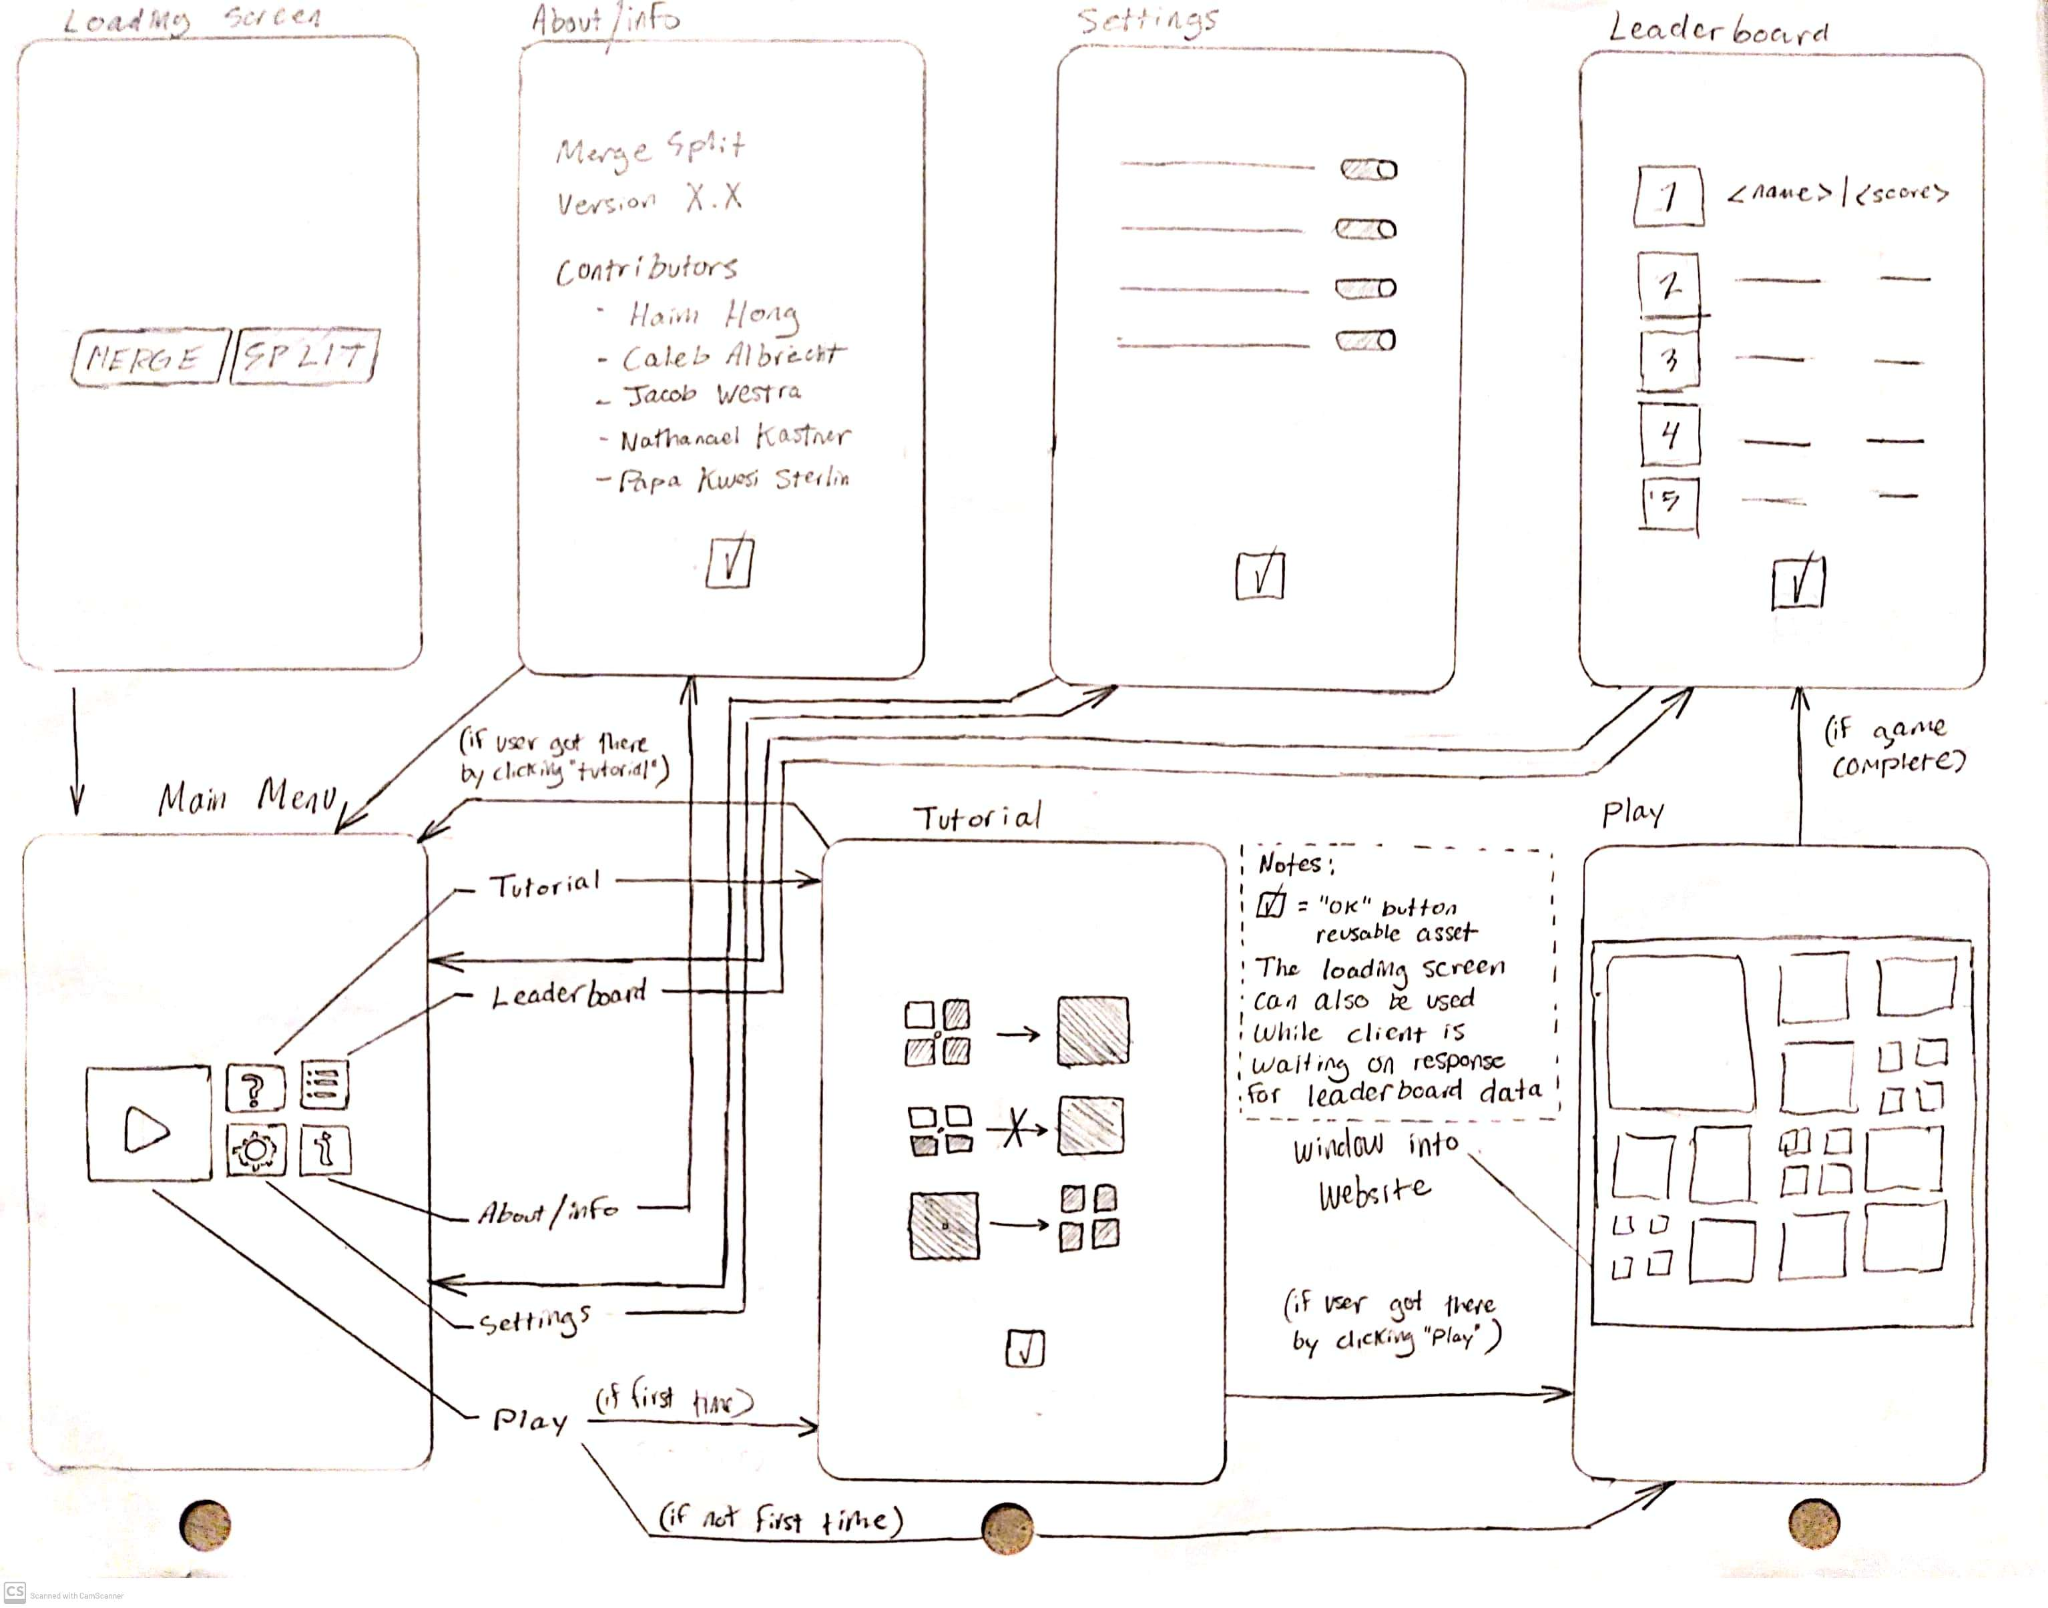 Loading Screen
MERGE SPLIT
About/info
Merge Split
Version X.X
Contributors
- Haim Hong
- Caleb Albrecht
- Jacob Westra
- Nathanael Kastner
- Papa Kwesi Sterlin
Settings
Leaderboard
1 <name> | <score>
2
3
4
5
(if user got there
by clicking "tutorial")
(if game
complete)
Main Menu
?
i
Tutorial
Leaderboard
About/info
Settings
Play
(if first time)
(if not first time)
Tutorial
Notes:
= "OK" button
reusable asset
The loading screen
can also be used
while client is
waiting on response
for leaderboard data
window into
website
(if user got there
by clicking "Play")
Play
CS Scanned with CamScanner